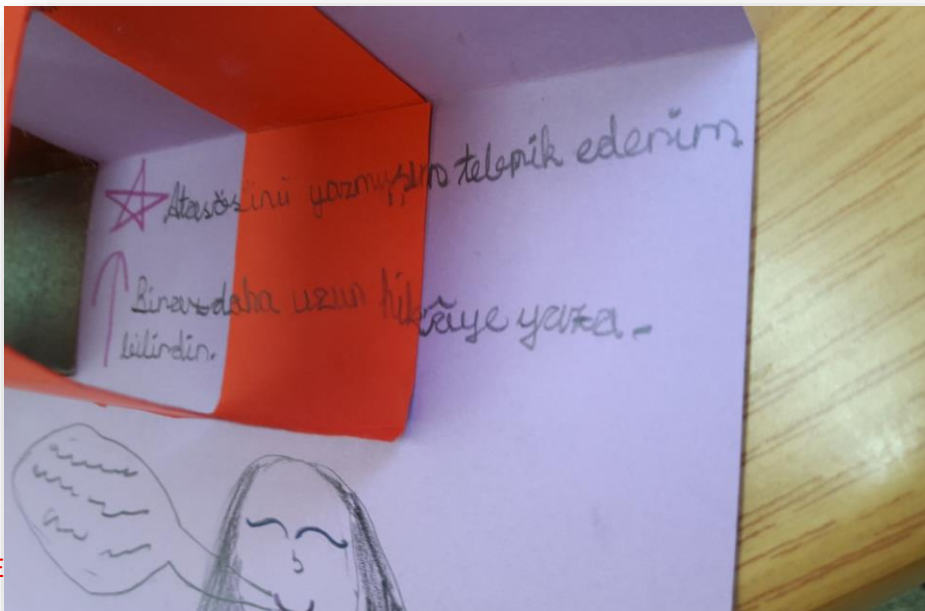 Atasözünü yazmışsın tebrik ederim.
Biraz daha uzun hikâye yaza-
bilirdin.